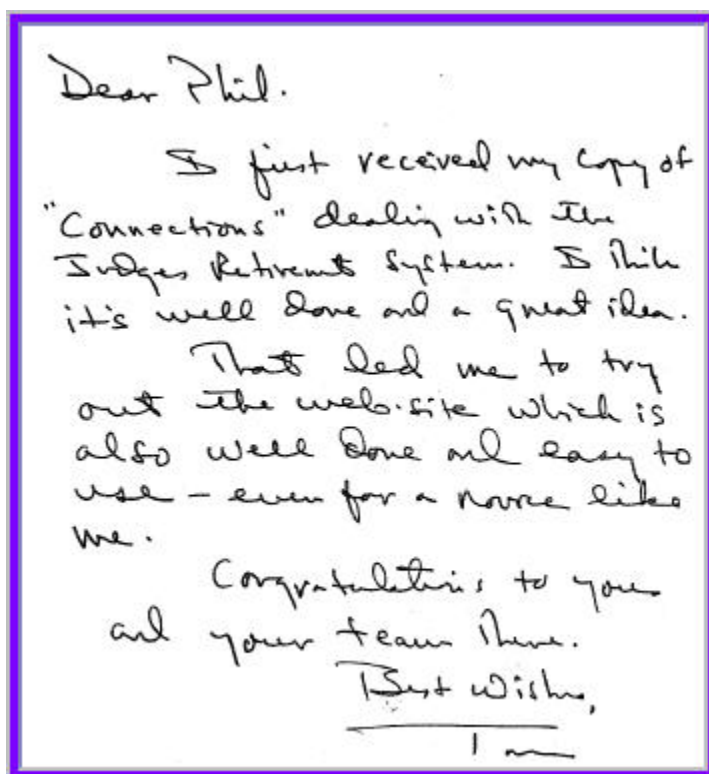 Dear Phil.
I just received my copy of
"Connections" dealing with the
Judges Retirement System. I think
it's well done and a great idea.
That led me to try
out the web.site which is
also well done and easy to
use – even for a novice like
me.
Congratulations to you
and your team there.
Best Wishes,
Tom